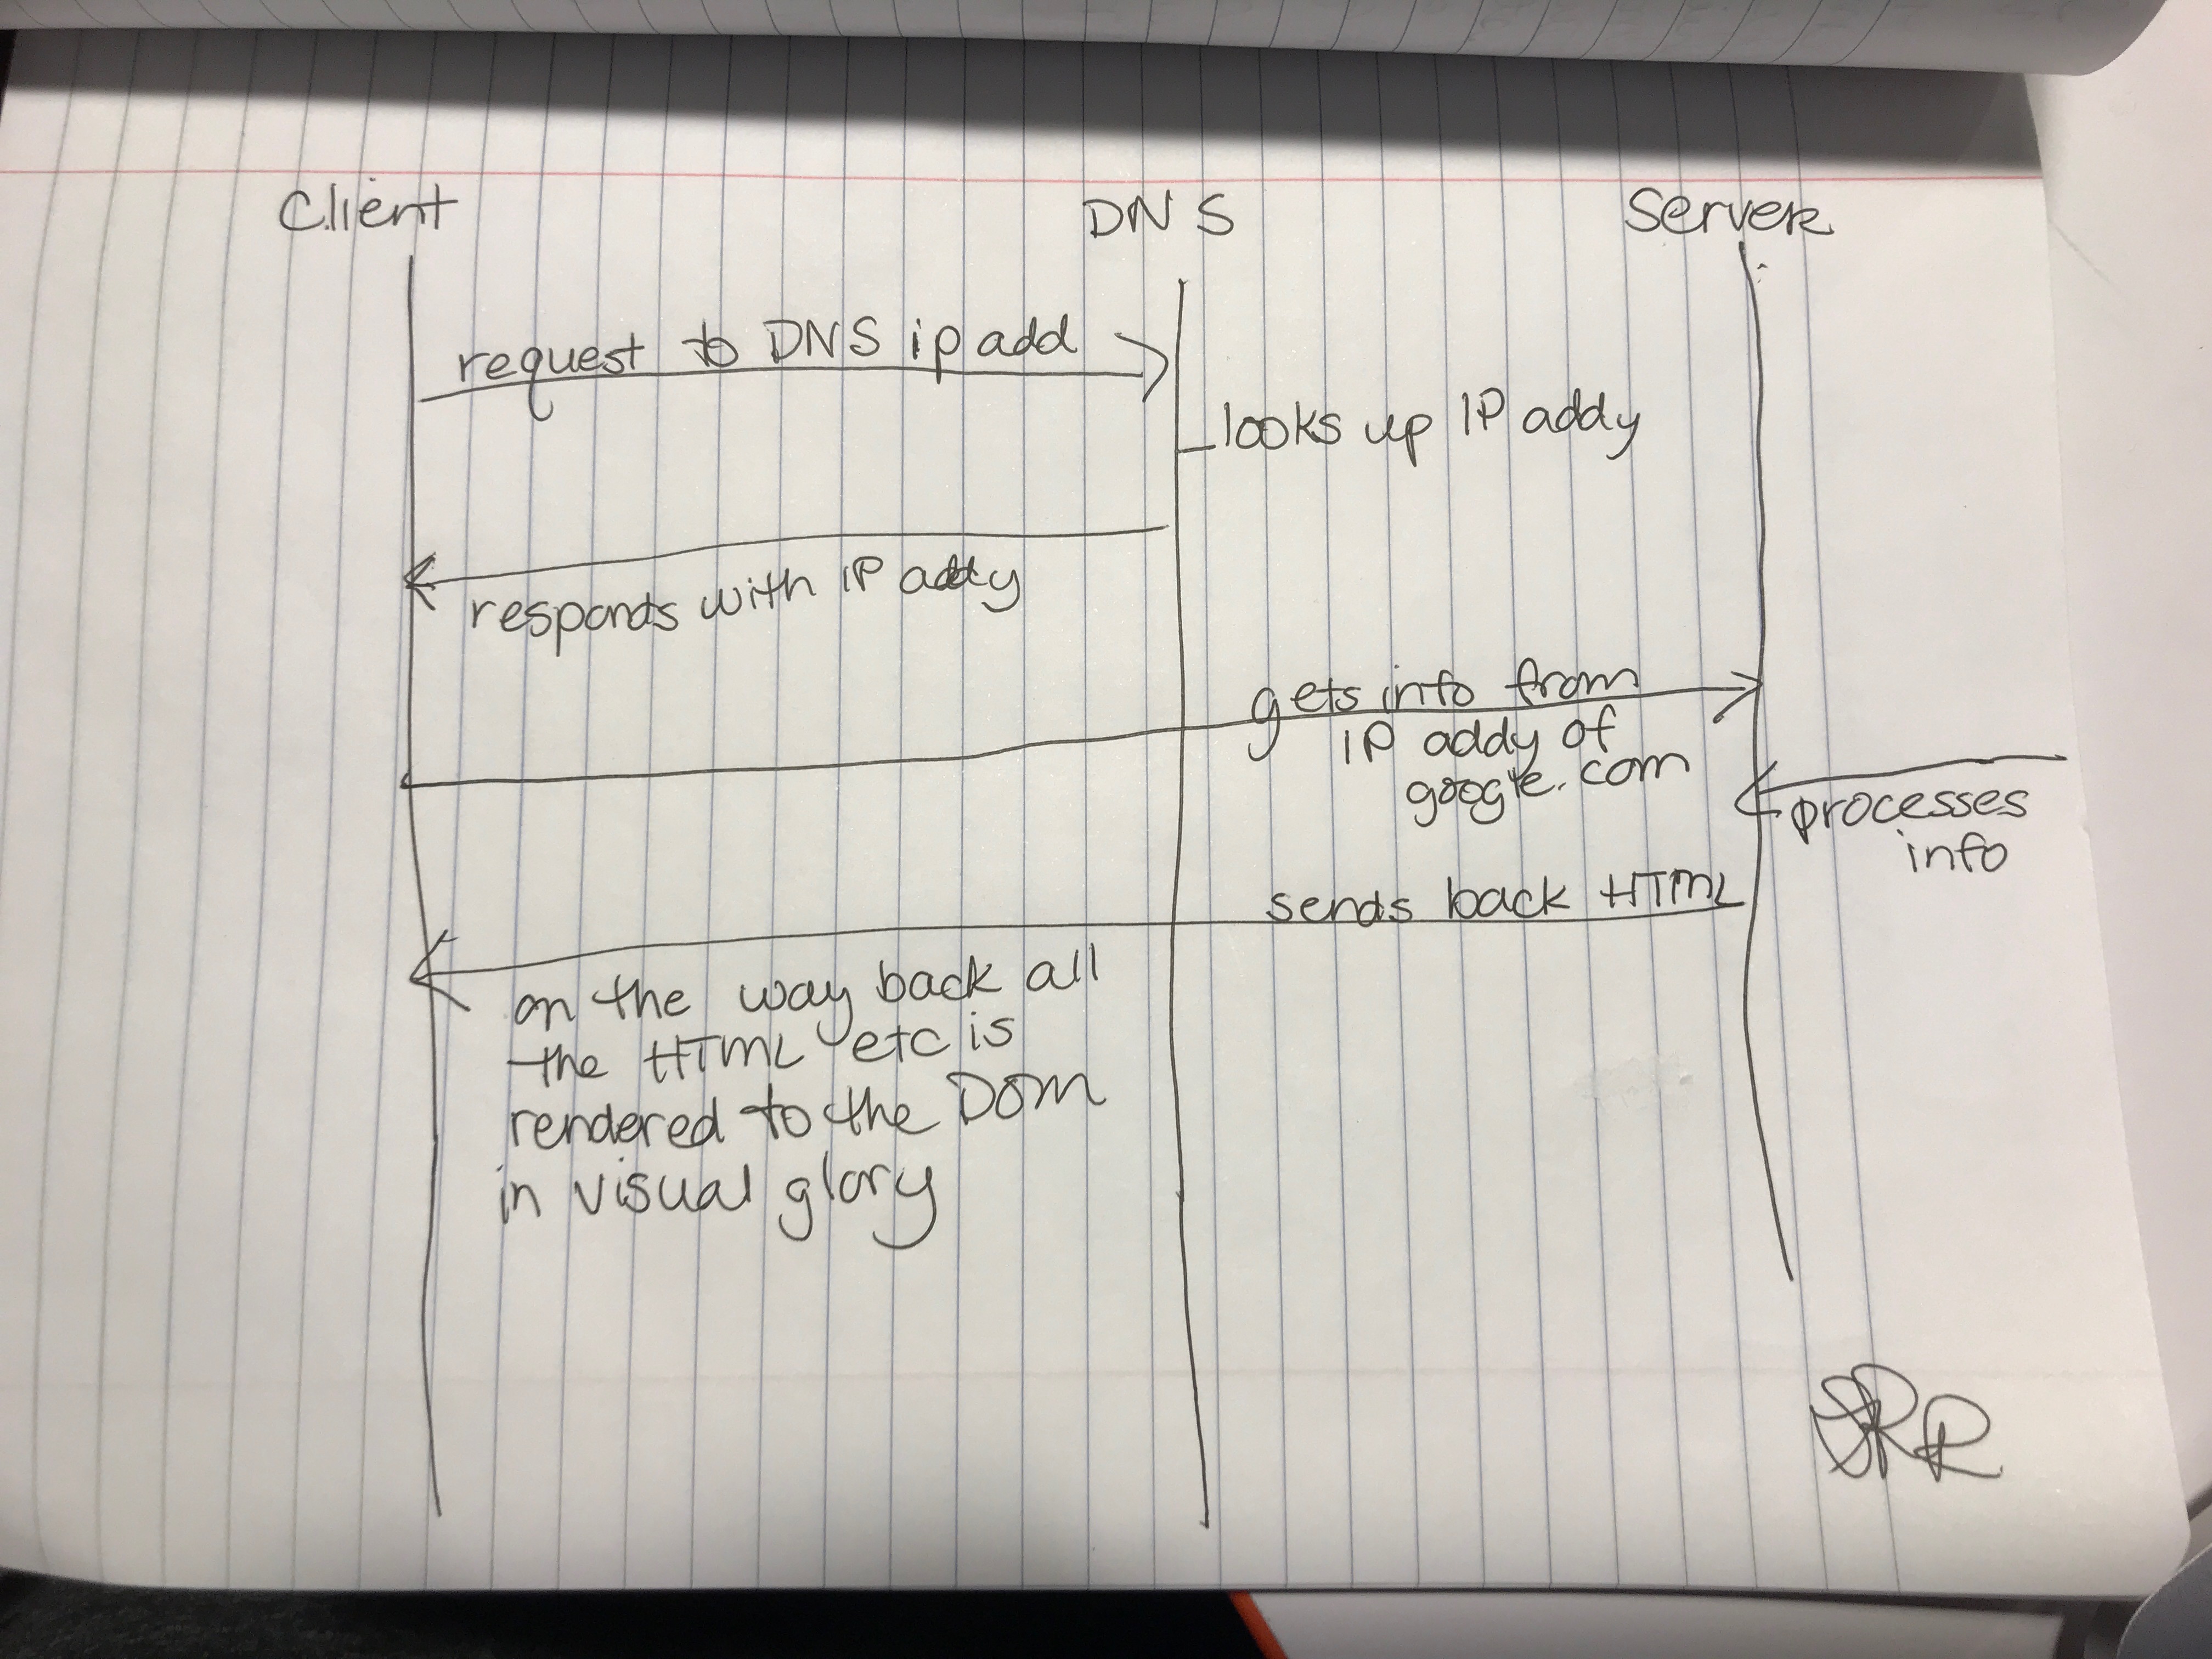 Client
DNS
Server
request to DNS ip add
looks up IP addy
responds with IP addy
gets info from
IP addy of
google.com
processes
info
sends back HTML
on the way back all
the HTML etc is
rendered to the DOM
in visual glory